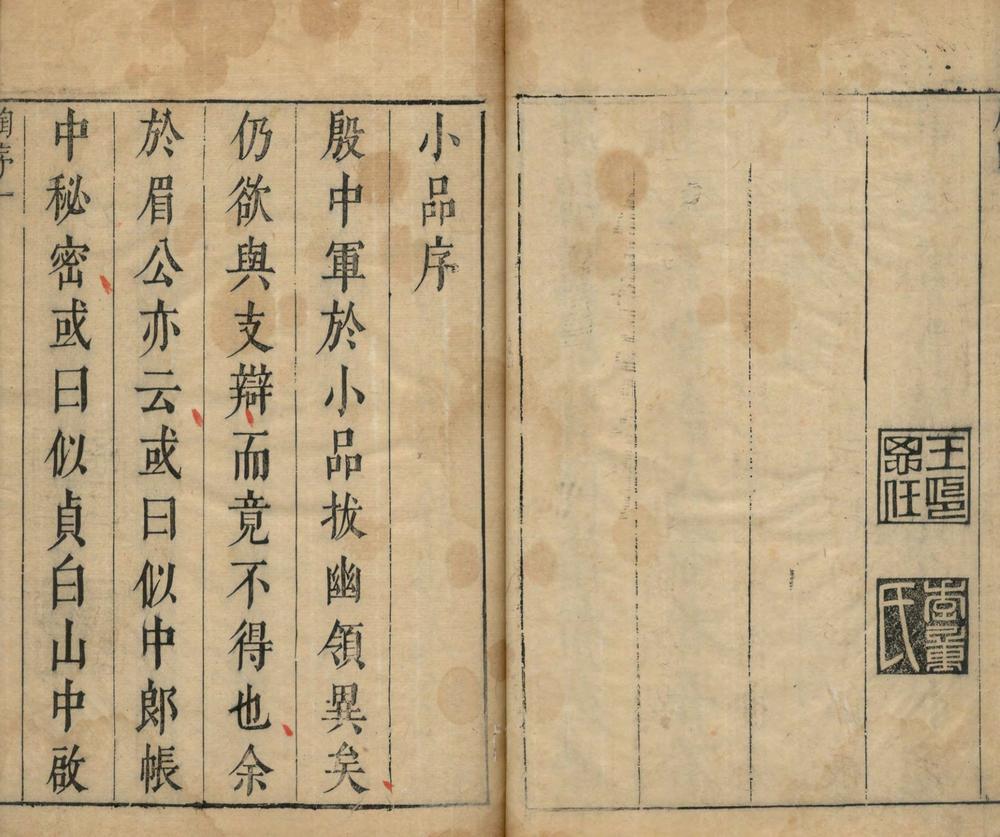 王思任印
季重氏
小品序
殷中軍於小品拔幽領異矣
仍欲與支辯而竟不得也余
於眉公亦云或曰似中郎帳
中秘密或曰似貞白山中啟
陶序一